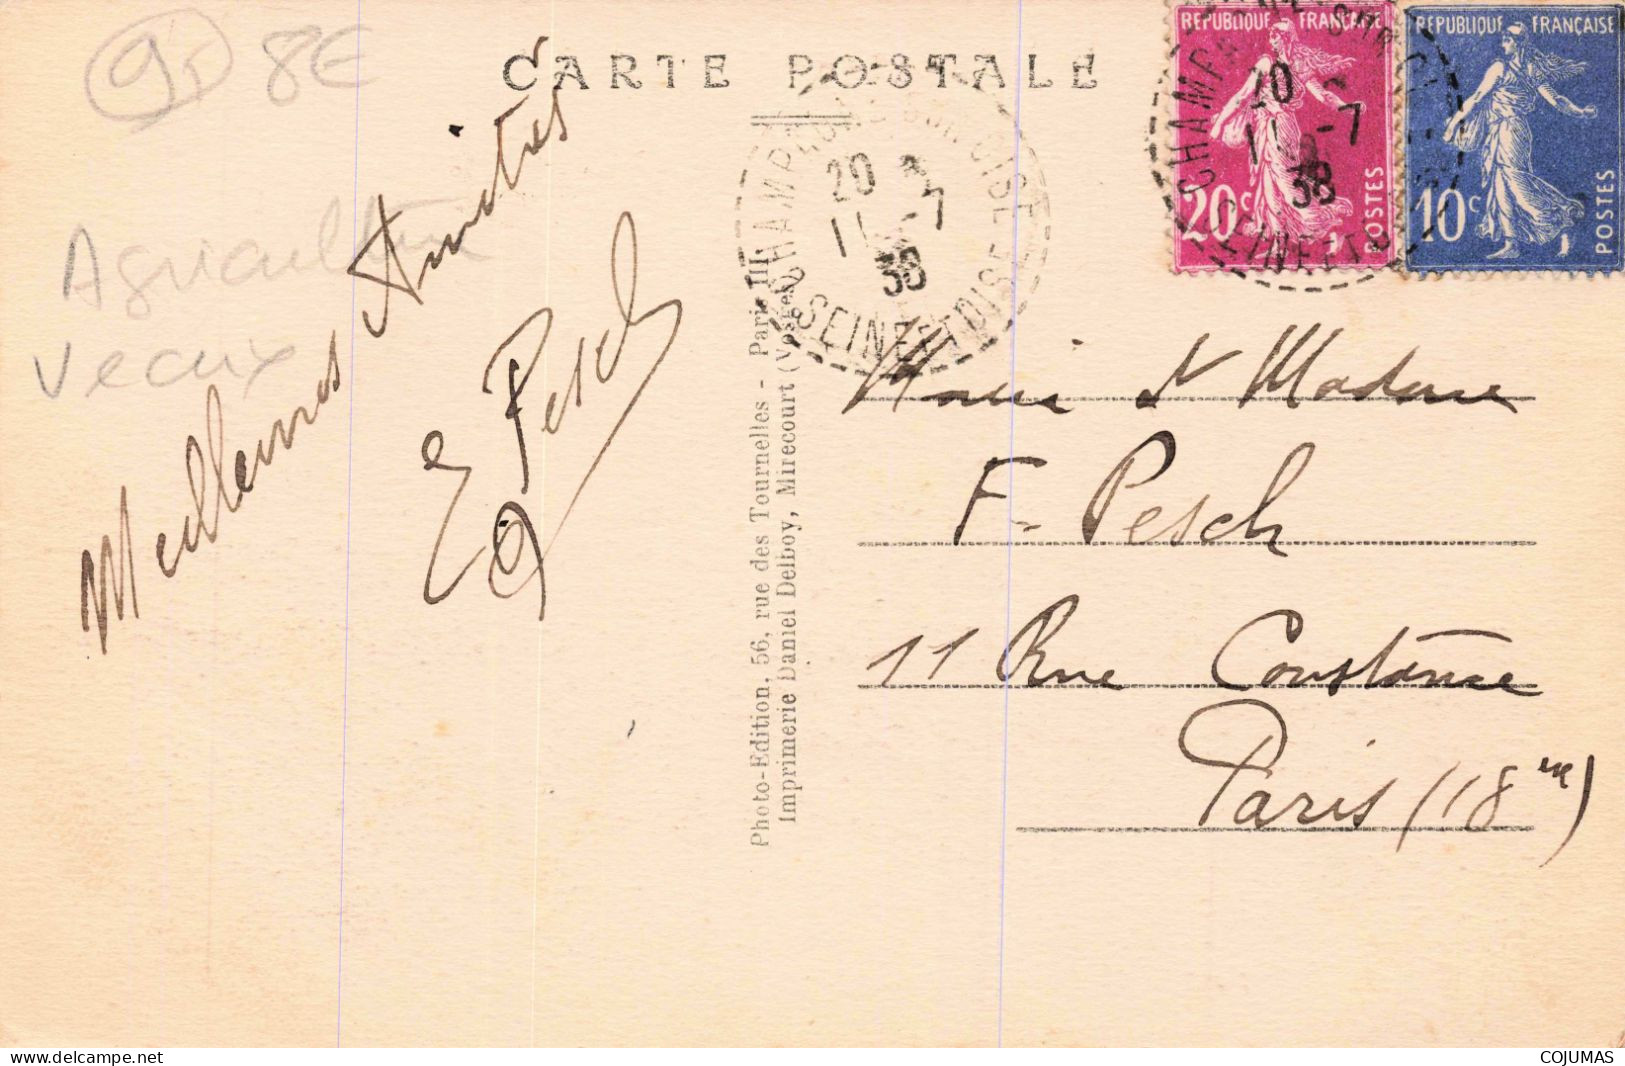 95 8€
CARTE POSTALE
Agriculture
Veaux
Meilleures Amitiés
E Pesch
Photo-Edition, 56, rue des Tournelles - Paris III
Imprimerie Daniel Delboy, Mirecourt (Vosges)
CHAMPAGNE SUR OISE
20
11 -7
38
SEINE ET OISE
REPUBLIQUE FRANÇAISE
20c
POSTES
REPUBLIQUE FRANÇAISE
10c
POSTES
CHAMPAGNE SUR OISE
20
11 -7
38
SEINE ET OISE
Madame
F. Pesch
11 Rue Constance
Paris (18em)
COJUMAS